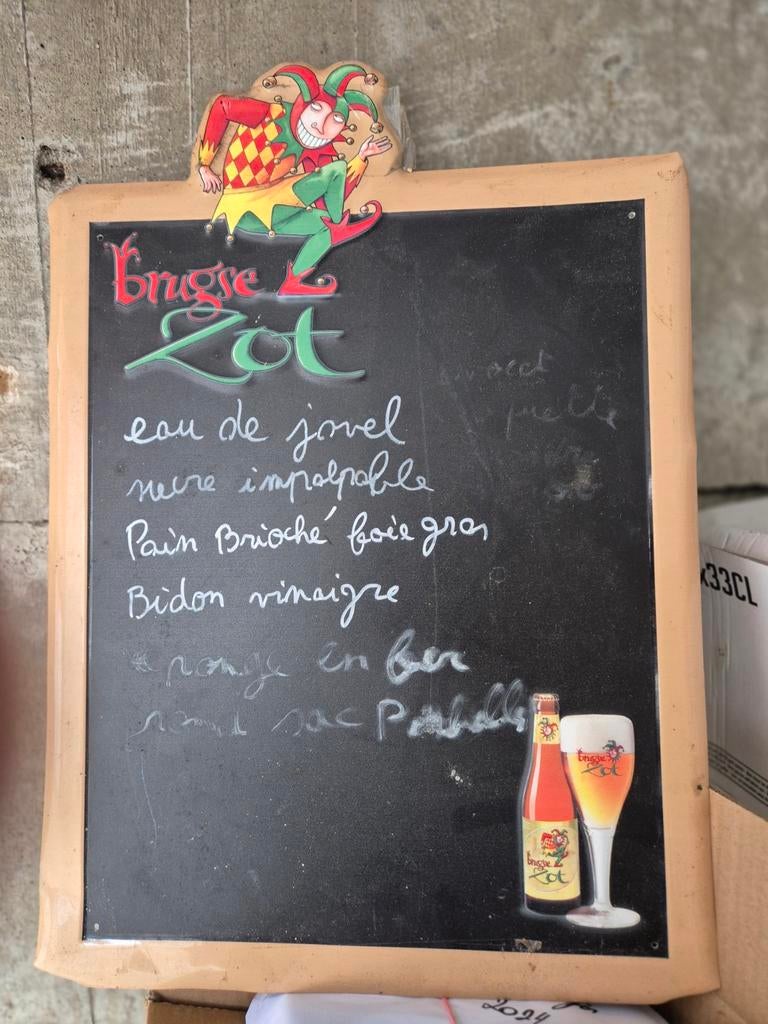 brugse
Zot
eau de javel
sucre impalpable
Pain Brioché foie gras
Bidon vinaigre
éponge en fer
sac Poubelle
x33CL
brugse
Zot
brugse
Zot
2024